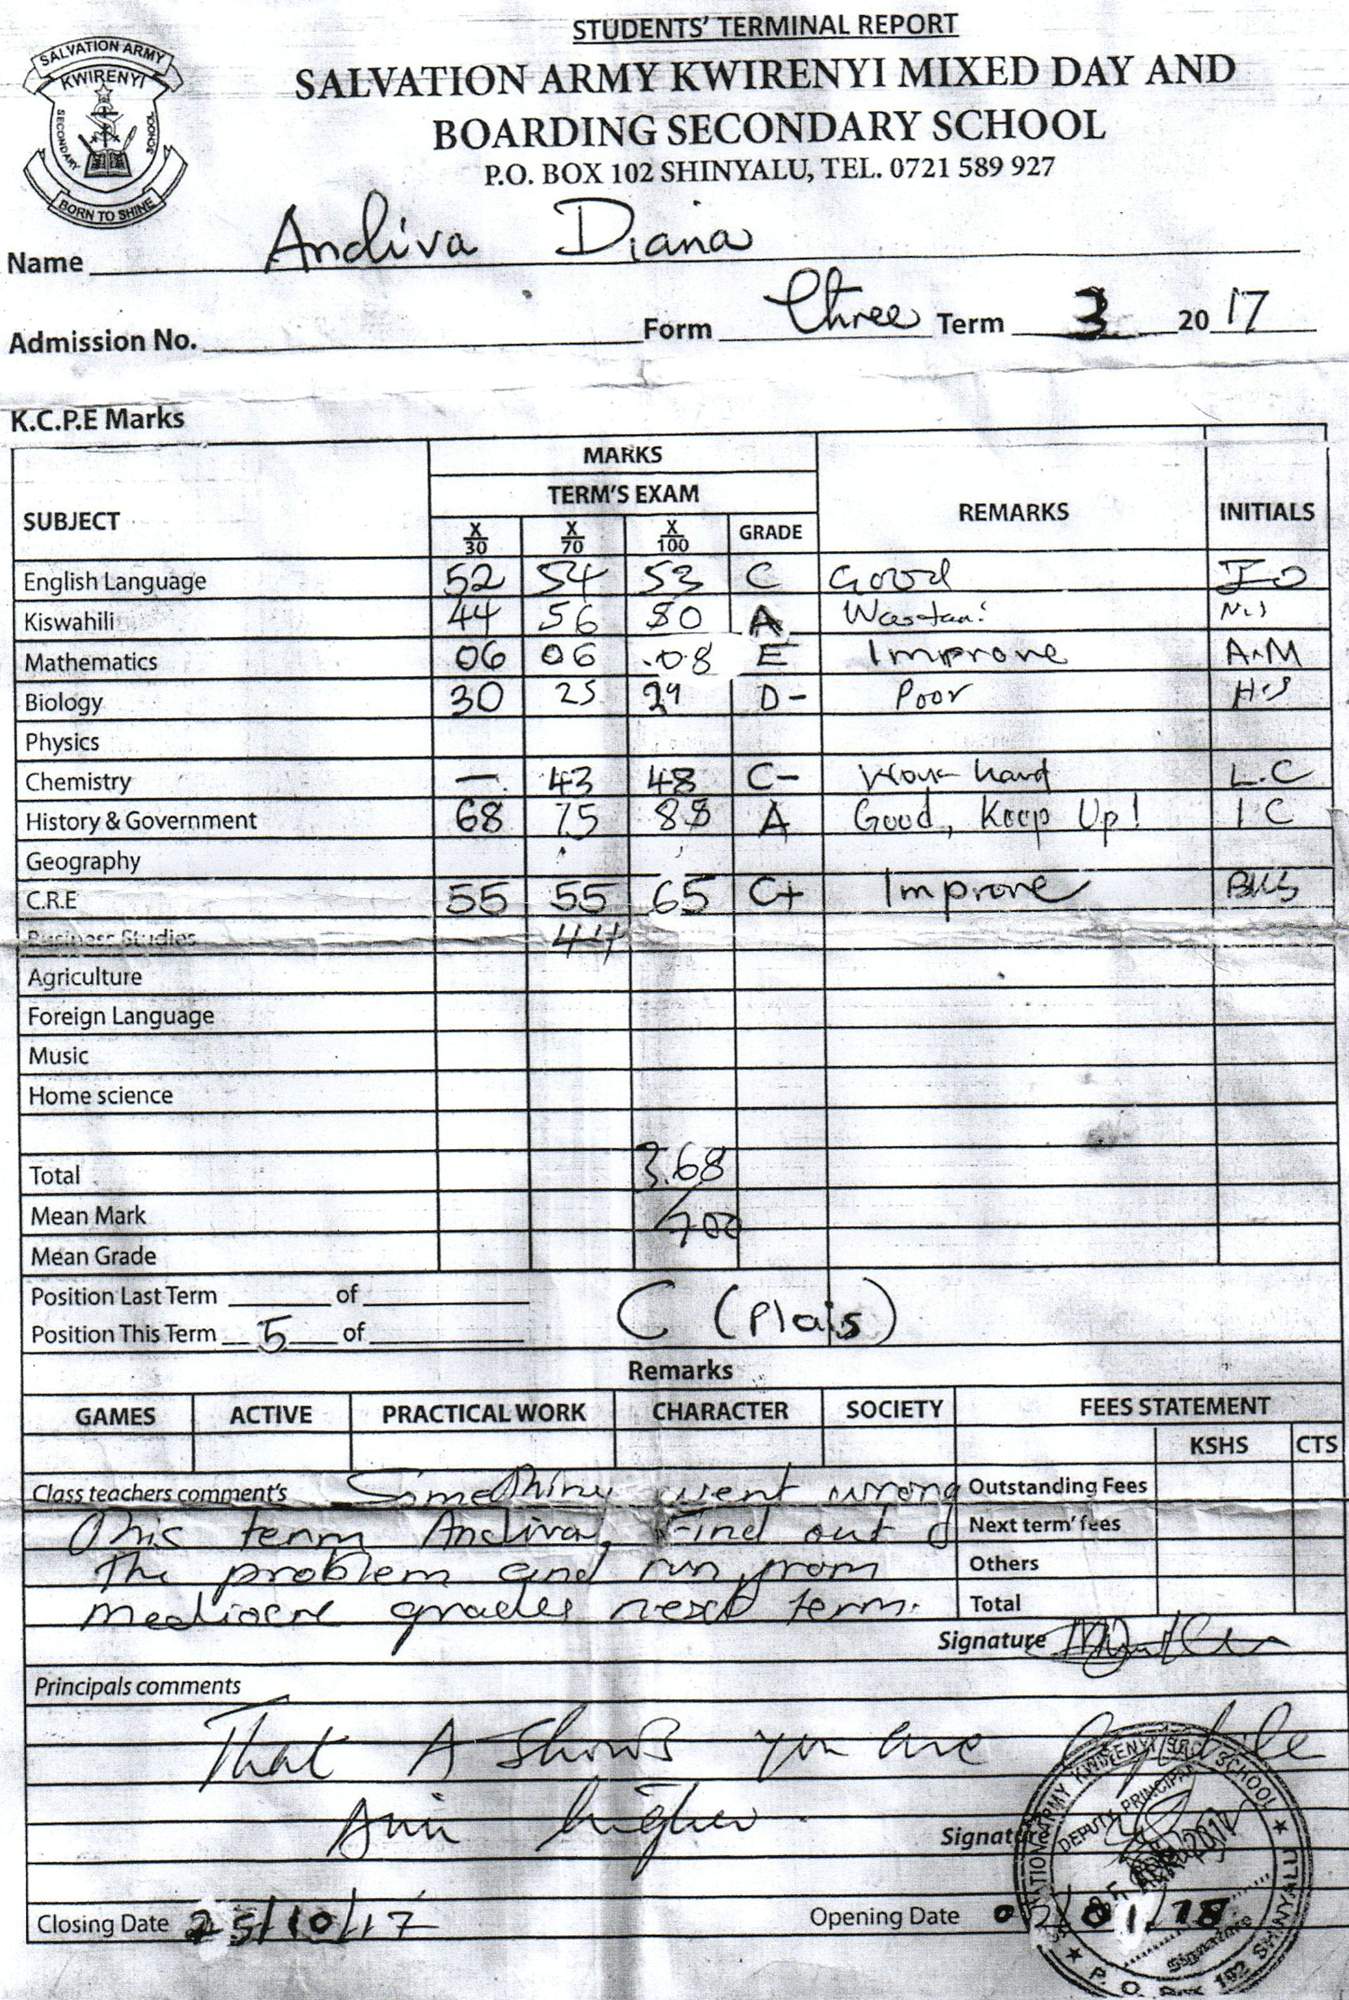 STUDENTS' TERMINAL REPORT
SALVATION ARMY KWIRENYI MIXED DAY AND
BOARDING SECONDARY SCHOOL
P.O. BOX 102 SHINYALU, TEL. 0721 589 927
SALVATION ARMY
KWIRENYI
SECONDARY SCHOOL
BORN TO SHINE
Name Andiva Diana
Admission No. Form three Term 3 2017
K.C.P.E Marks
MARKS
TERM'S EXAM
SUBJECT X/30 X/70 X/100 GRADE REMARKS INITIALS
English Language 52 54 53 C Good
Kiswahili 44 56 80 A Wastani
Mathematics 06 06 .08 E Improve A.M
Biology 30 25 29 D- Poor H.S
Physics
Chemistry — 43 48 C- Work hard L.C
History & Government 68 75 88 A Good, Keep Up! I C
Geography
C.R.E 55 55 65 C+ Improve
Business Studies 44
Agriculture
Foreign Language
Music
Home science
Total 368
Mean Mark 700
Mean Grade
Position Last Term of
C (Plain)
Position This Term 5 of
Remarks
GAMES ACTIVE PRACTICAL WORK CHARACTER SOCIETY FEES STATEMENT
KSHS CTS
Class teachers comment's Something went wrong
this term Andiva, Find out
the problem and run from
mediocre grades next term.
Outstanding Fees
Next term' fees
Others
Total
Signature
Principals comments
That A shows you are capable
Aim higher
Signature
Closing Date 25/10/17 Opening Date 02/01/18
SALVATION ARMY KWIRENYI SEC. SCHOOL
DEPUTY PRINCIPAL
Signature
P. O. Box 102 SHINYALU